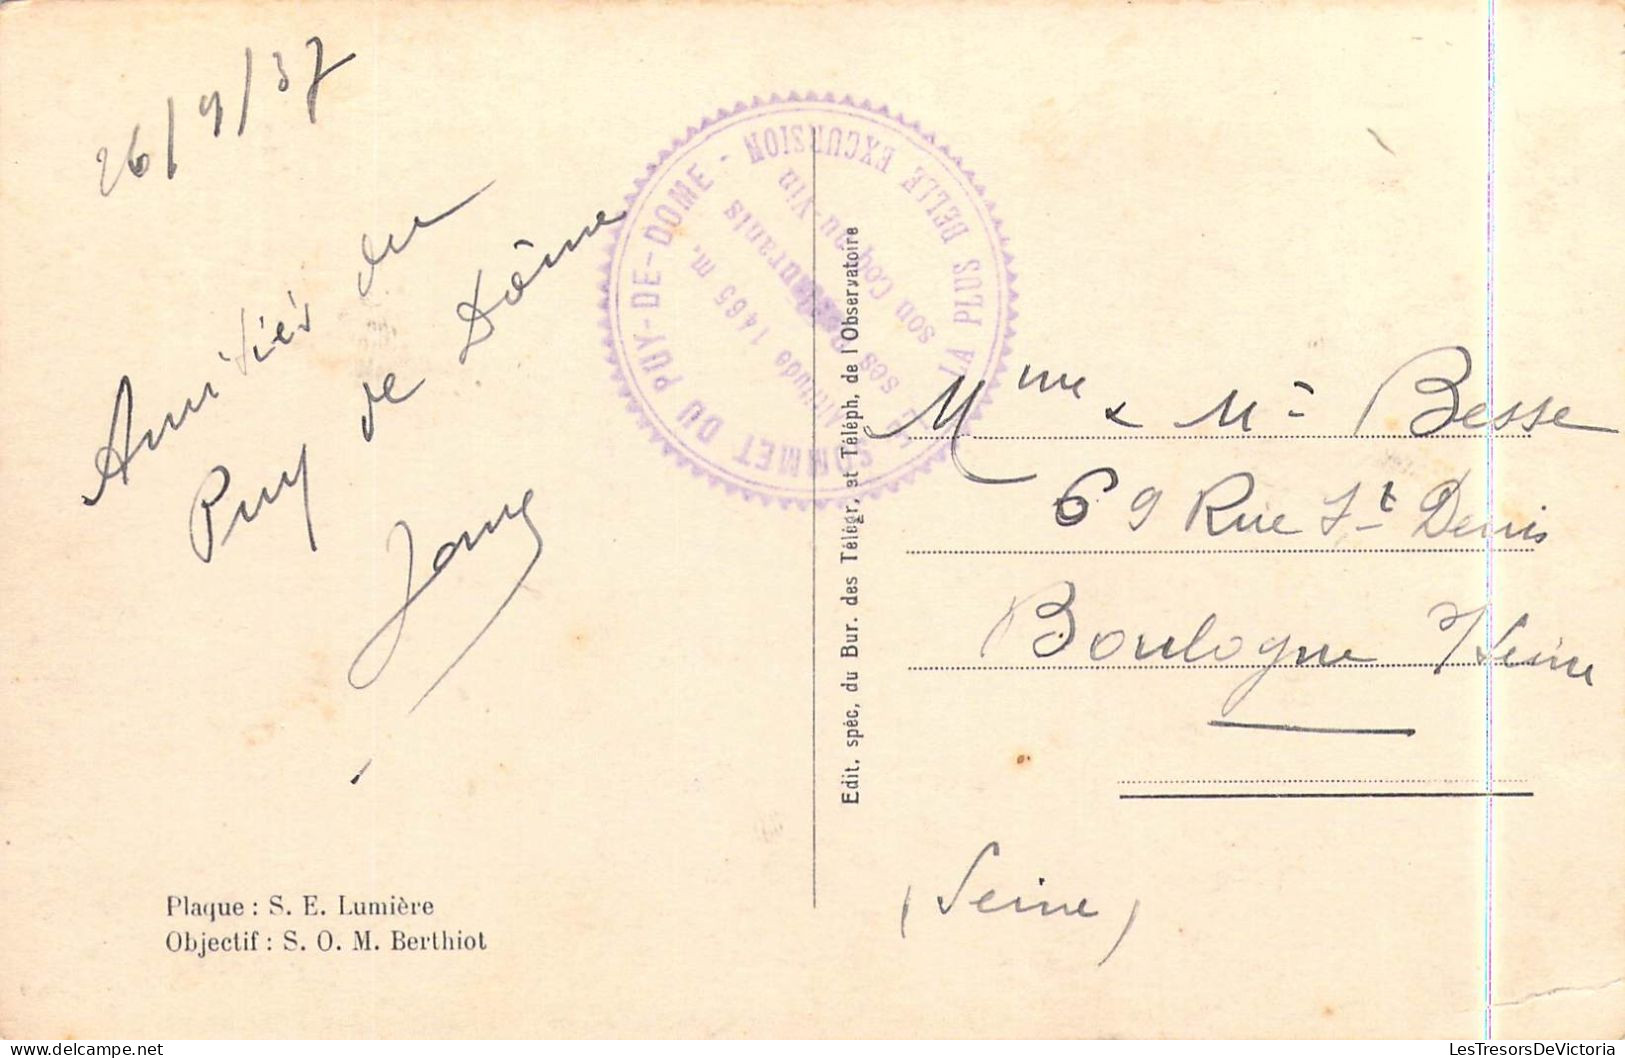 26/9/37
Amitiés du
Puy de Dôme
Plaque : S. E. Lumière
Objectif : S. O. M. Berthiot
SOMMET DU PUY-DE-DOME - LA PLUS BELLE EXCURSION
Altitude 1465 m.
ses Restaurants
son Coq-au-Vin
Edit. spéc. du Bur. des Télégr. et Téléph. de l'Observatoire
Mme & Mr Besse
69 Rue St Denis
Boulogne s/Seine
(Seine)
LesTresorsDeVictoria